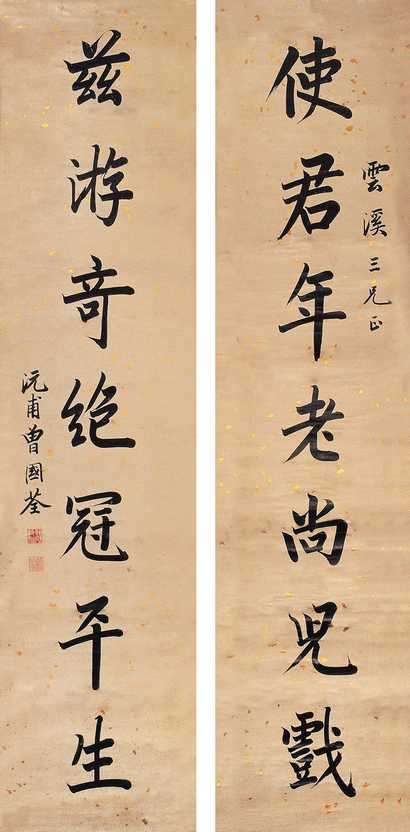 使君年老尚兒戲
雲溪三兄正
茲游奇絕冠平生
沅甫曾國荃